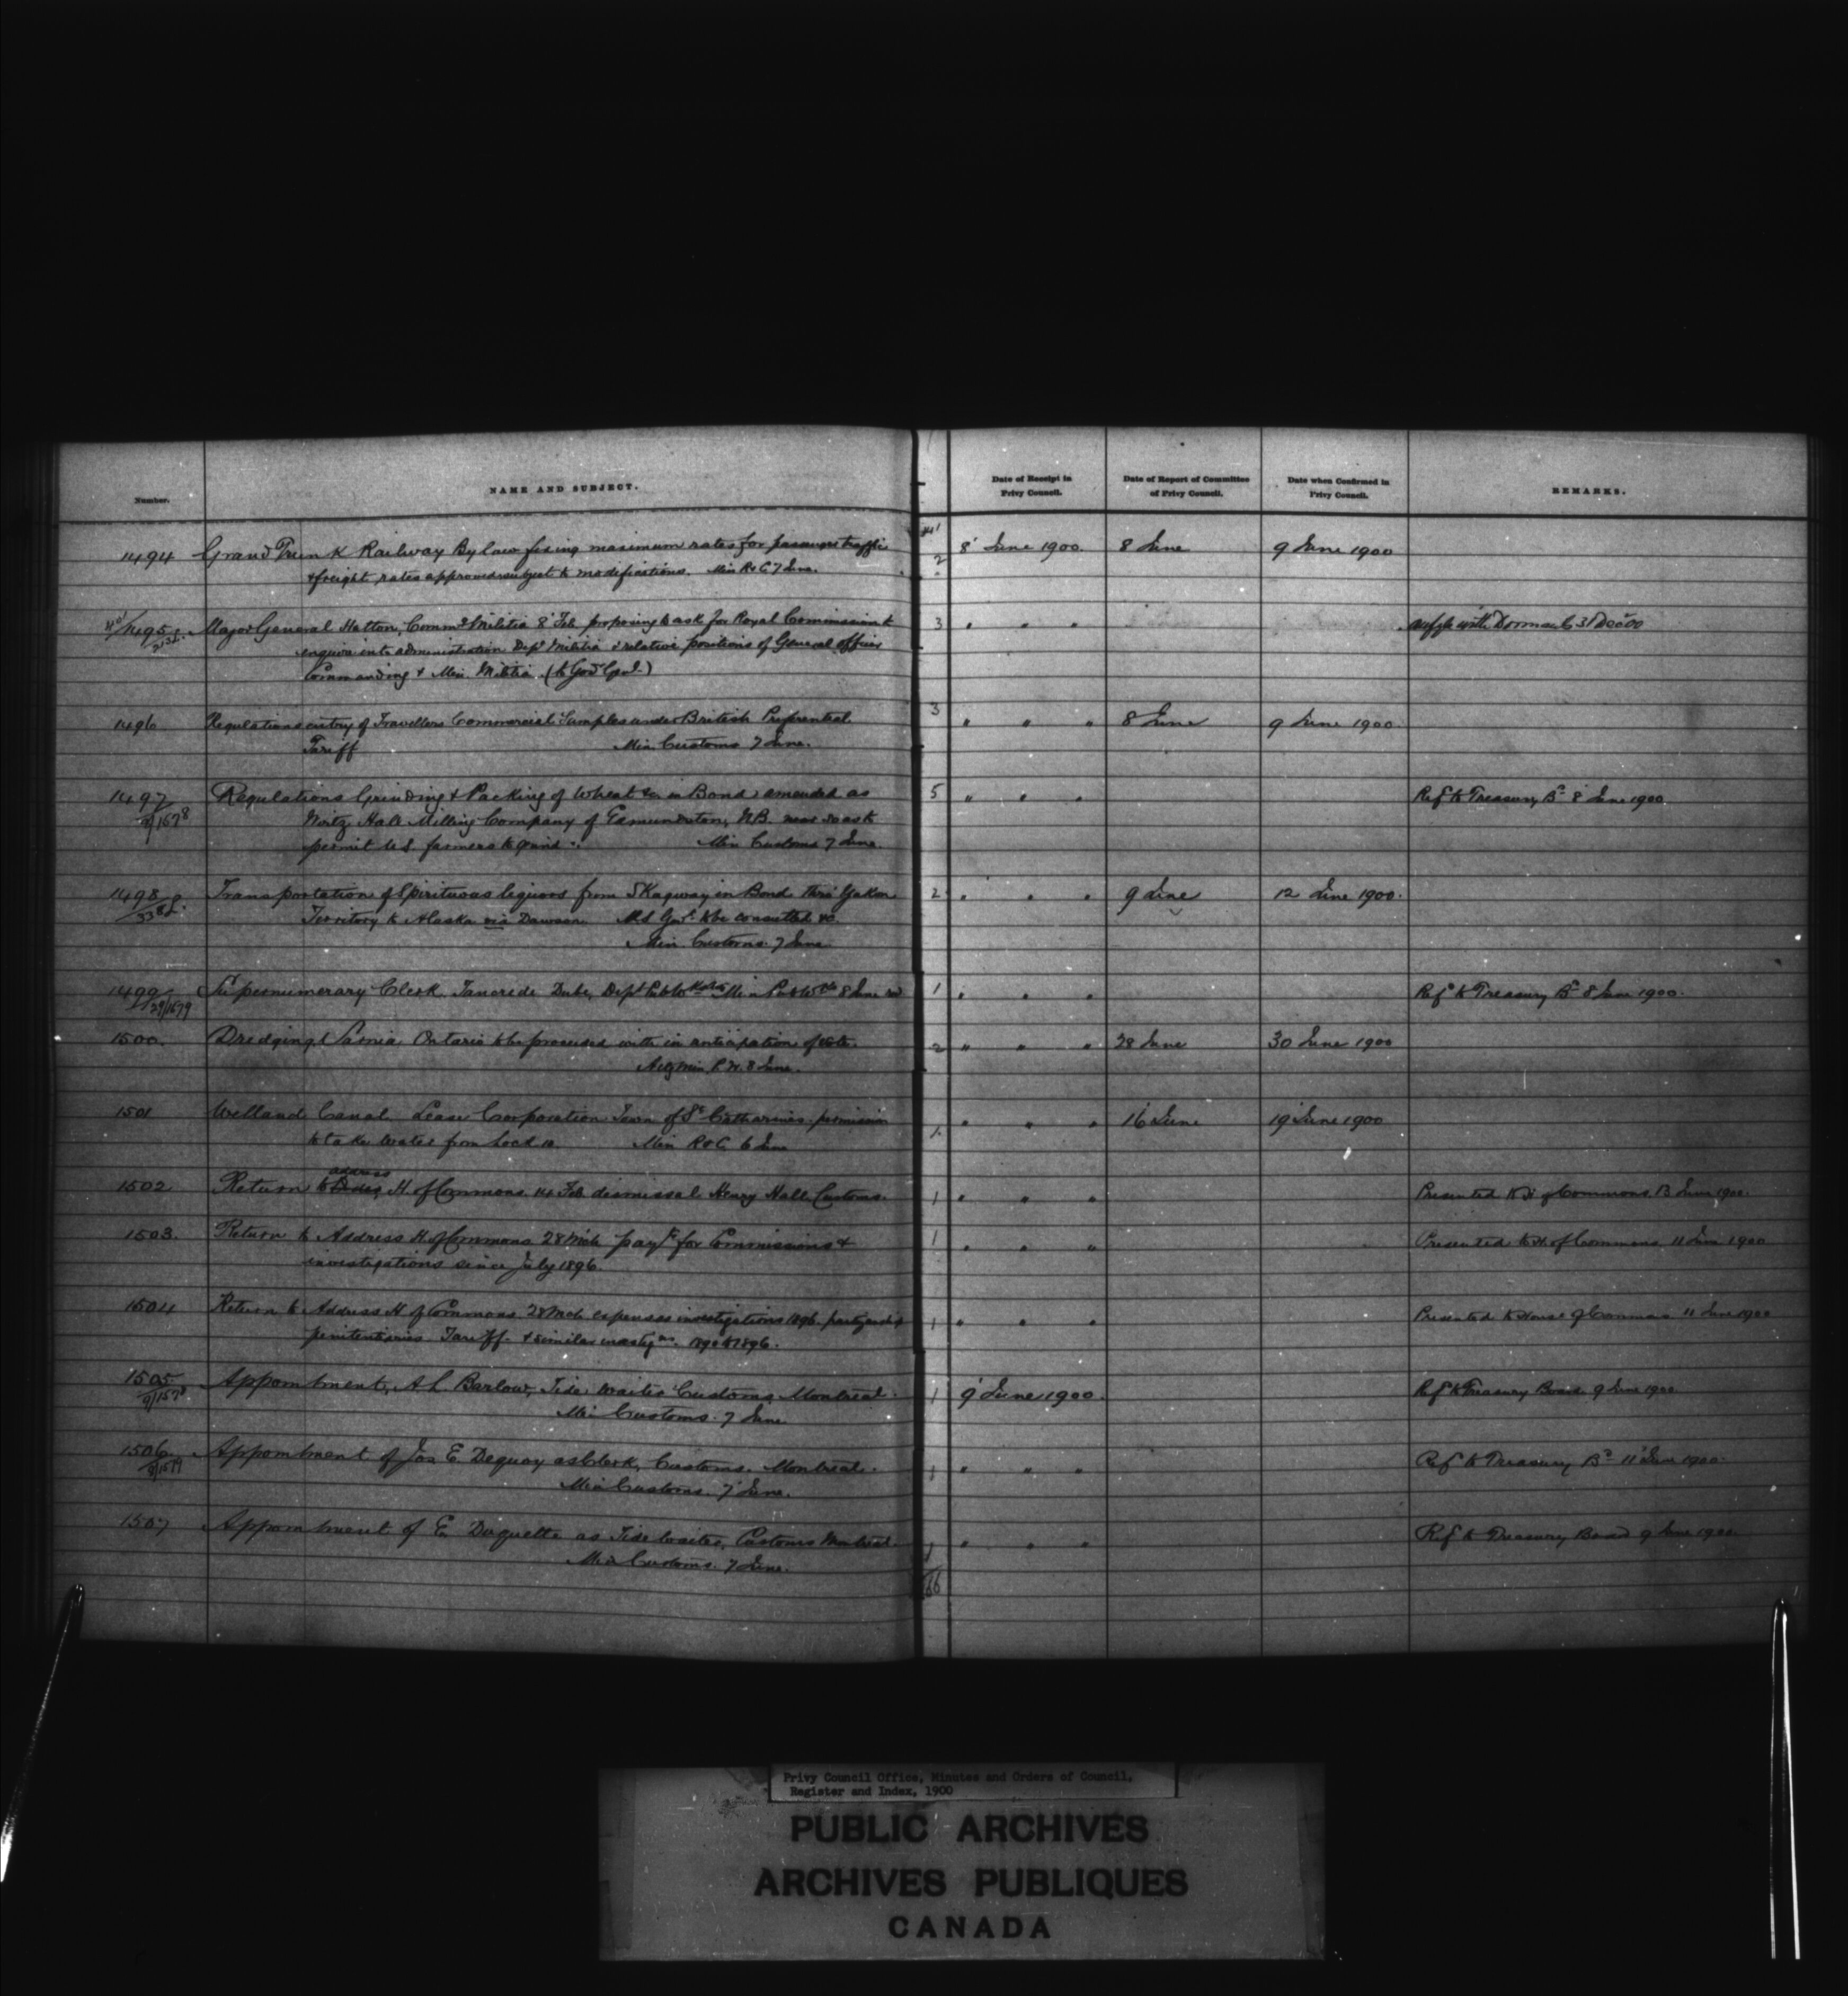 Number.
NAME AND SUBJECT.
Date of Receipt in Privy Council.
Date of Report of Committee of Privy Council.
Date when Confirmed in Privy Council.
REMARKS.
1494 Grand Trunk Railway By law fixing maximum rates for passenger traffic 2 8' June 1900. 8 June 9 June 1900
& freight, rates approved subject to modifications. Min R & C 7 June.
1495 Major General Hutton, Commg Militia 8' Feb. proposing to ask for Royal Commission to 3 " " "
enquire into administration Dept Militia & relative positions of General officer
Commanding & Min. Militia. (to Govr Genl.)
1496 Regulations entry of Travellers Commercial Samples under British Preferential 3 " " " 8 June 9 June 1900
Tariff Min. Customs 7 June.
1497 Regulations Grinding & Packing of Wheat &c in Bond amended as 5 " " " Ref to Treasury Bd 8 June 1900
Hall Milling Company of Edmundston, N.B.
permit U.S. farmers to grind Min Customs 7 June.
1498 Transportation of Spirituous liquors from Skagway in Bond thro' Yukon 2 " " " 9 June 12 June 1900.
Territory to Alaska via Dawson. to be consulted &c.
Min Customs 7 June
1499 Supernumerary Clerk Tancrede Dube, Dept Pub Works Min Pub Wks 8 June 1 " " " Ref to Treasury Bd 8 June 1900.
1500. Dredging Sarnia Ontario to be proceeded with in anticipation of vote. 2 " " " 28 June 30 June 1900
Actg Min. P.W. 8 June.
1501 Welland Canal Lease Corporation Town of St Catharines permission 1 " " " 16 June 19 June 1900
to take water from Lock Min R & C 6 June
1502 Return to address H. of Commons 14 Feb. dismissal Henry Hall Customs. 1 " " " Presented to H of Commons 13 June 1900.
1503. Return to Address H. of Commons 28 Mch payt for Commissions & 1 " " " Presented to H. of Commons 11 June 1900
investigations since July 1896.
1504 Return to Address H of Commons 28 Mch expenses investigations 1896 1 " " " Presented to House of Commons 11 June 1900
penitentiaries Tariff & similar 1890 to 1896.
1505 Appointment, A L. Barlow, Tide Waiter Customs, Montreal. 1 9' June 1900. Ref to Treasury Board 9 June 1900
Min Customs. 7 June
1506 Appointment of Jos E. Deguoy as Clerk, Customs. Montreal. 1 " " " Ref to Treasury Bd 11' June 1900.
Min Customs. 7 June.
1507 Appointment of E Duquette as Tide Waiter, Customs Montreal. 1 " " " Ref to Treasury Board 9 June 1900
Min Customs. 7 June.
Privy Council Office, Minutes and Orders of Council,
Register and Index, 1900
PUBLIC ARCHIVES
ARCHIVES PUBLIQUES
CANADA